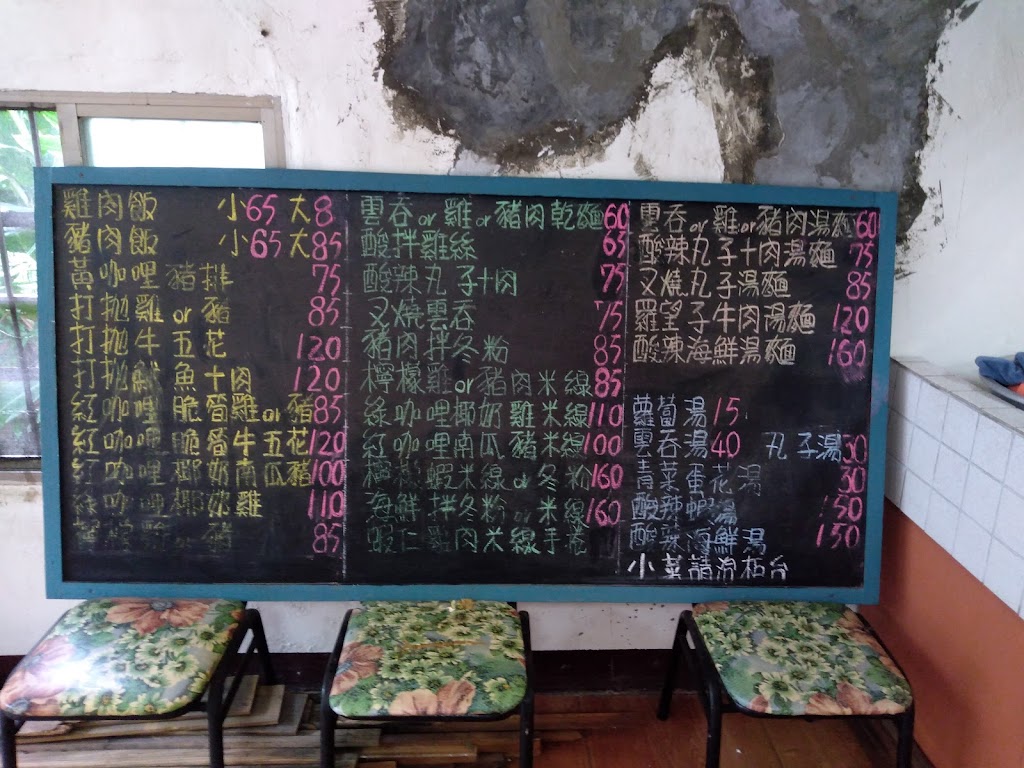 雞肉飯 小65 大8
豬肉飯 小65 大85
黃咖哩豬排 75
打拋雞or豬 85
打拋牛五花 120
打拋魷魚十肉 120
紅咖哩脆筍雞or豬 85
紅咖哩脆筍牛五花 120
紅咖哩椰奶南瓜豬 100
綠咖哩椰奶雞 110
85
雲吞or雞or豬肉乾麵 60
酸拌雞絲 65
酸辣丸子十肉 75
叉燒雲吞 75
豬肉拌冬粉 85
檸檬雞or豬肉米線 85
綠咖哩椰奶雞米線 110
紅咖哩南瓜豬米線 100
檸檬蝦米線or冬粉 160
海鮮拌冬粉or米線 160
蝦仁雞肉米線手捲
雲吞or雞or豬肉湯麵 60
酸辣丸子十肉湯麵 75
叉燒丸子湯麵 85
羅望子牛肉湯麵 120
酸辣海鮮湯麵 160
蘿蔔湯 15
雲吞湯 40 丸子湯 30
青菜蛋花湯 30
酸辣蝦湯 150
酸辣海鮮湯 150
小菜請洽柜台